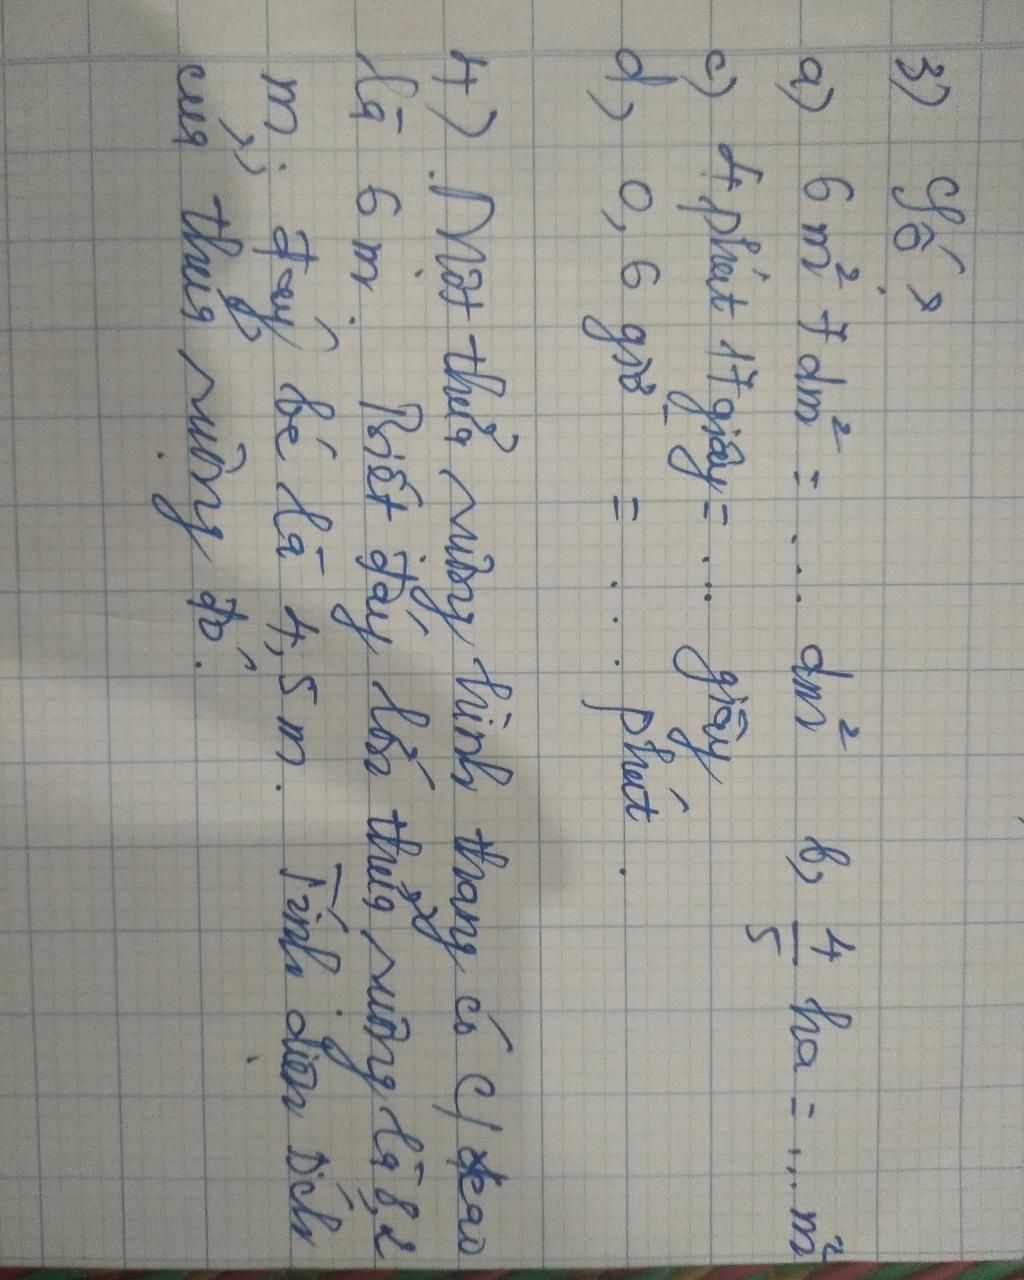 3) Số ?
a) 6 m² 7 dm² = ... dm² b) 4/5 ha = ... m²
c) 4 phút 17 giây = ... giây
d) 0,6 giờ = ... phút.
4) Một thửa ruộng hình thang có c/cao
là 6 m. Biết đáy lớn thửa ruộng là 8,2
m; đáy bé là 4,5 m. Tính diện tích
của thửa ruộng đó.